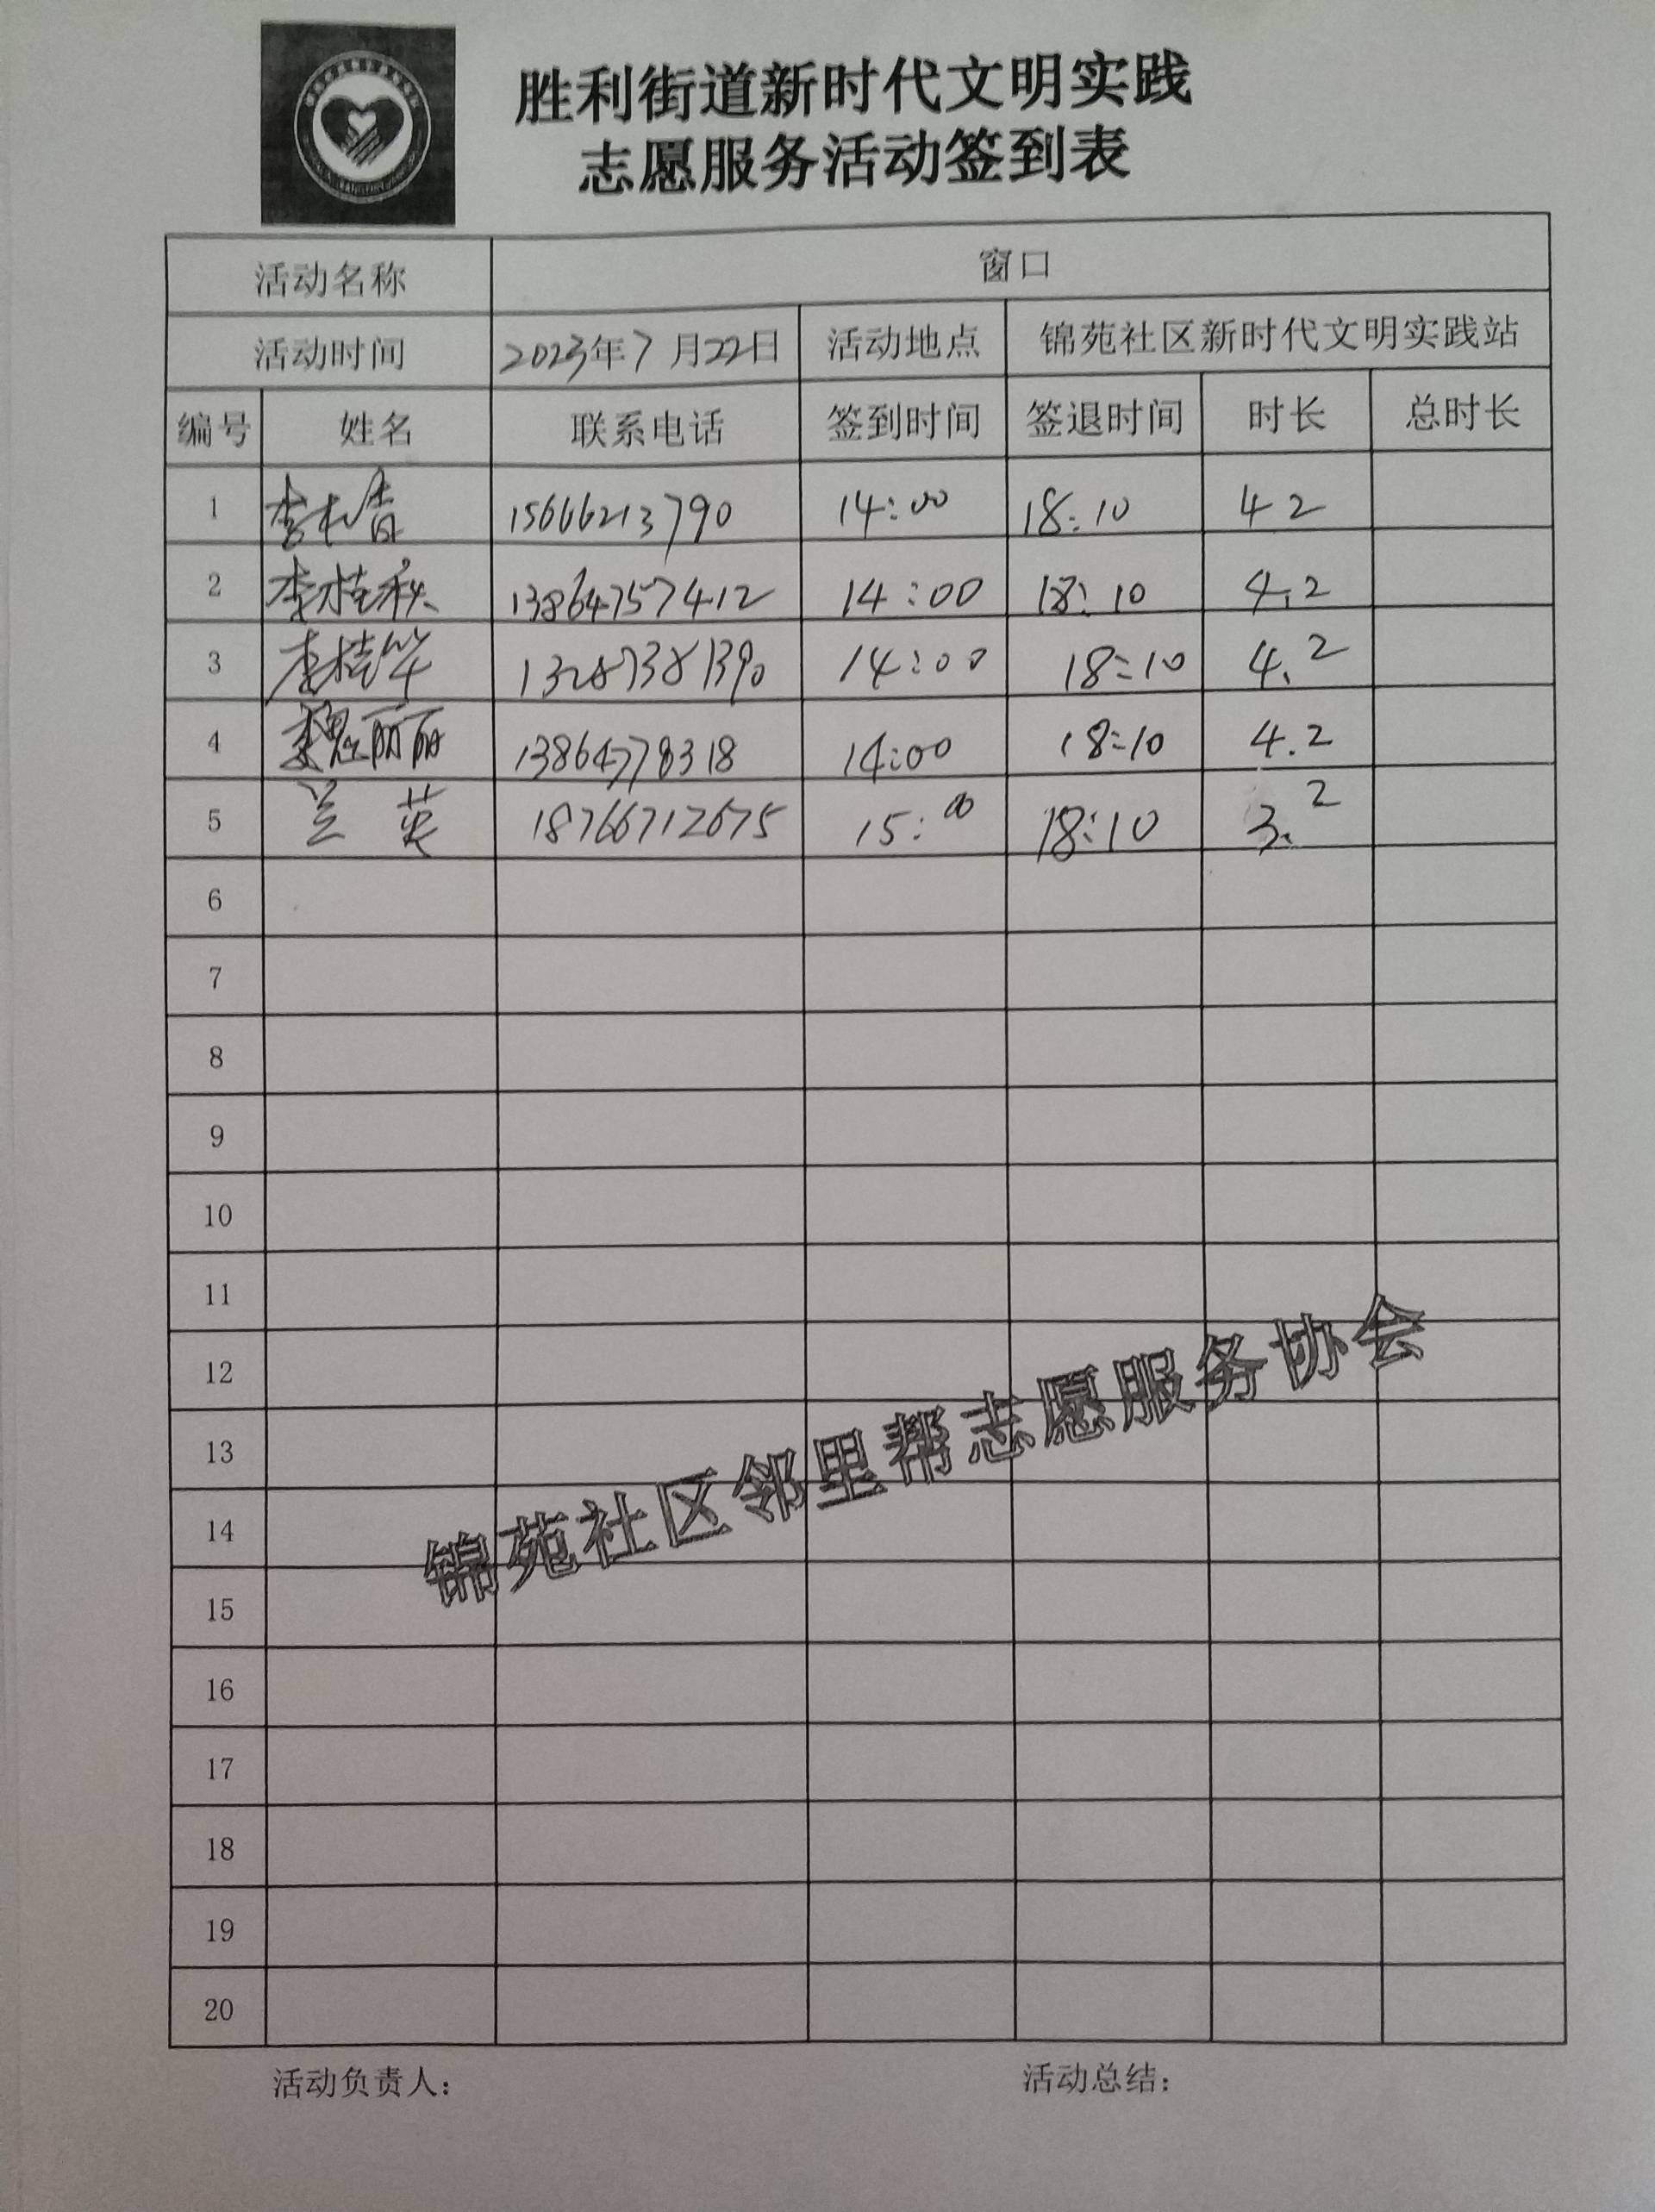 胜利街道新时代文明实践
志愿服务活动签到表
活动名称 窗口
活动时间 2023年7月22日 活动地点 锦苑社区新时代文明实践站
编号 姓名 联系电话 签到时间 签退时间 时长 总时长
1 15666213790 14:00 18:10 4 2
2 李桂秋 13864757412 14:00 18:10 4.2
3 李桂华 13287381390 14:00 18:10 4.2
4 魏丽丽 13864778318 14:00 18:10 4.2
5 兰英 18766712675 15:00 18:10 3.2
6
7
8
9
10
11
12
13
14
15
16
17
18
19
20
锦苑社区邻里帮志愿服务协会
活动负责人: 活动总结: